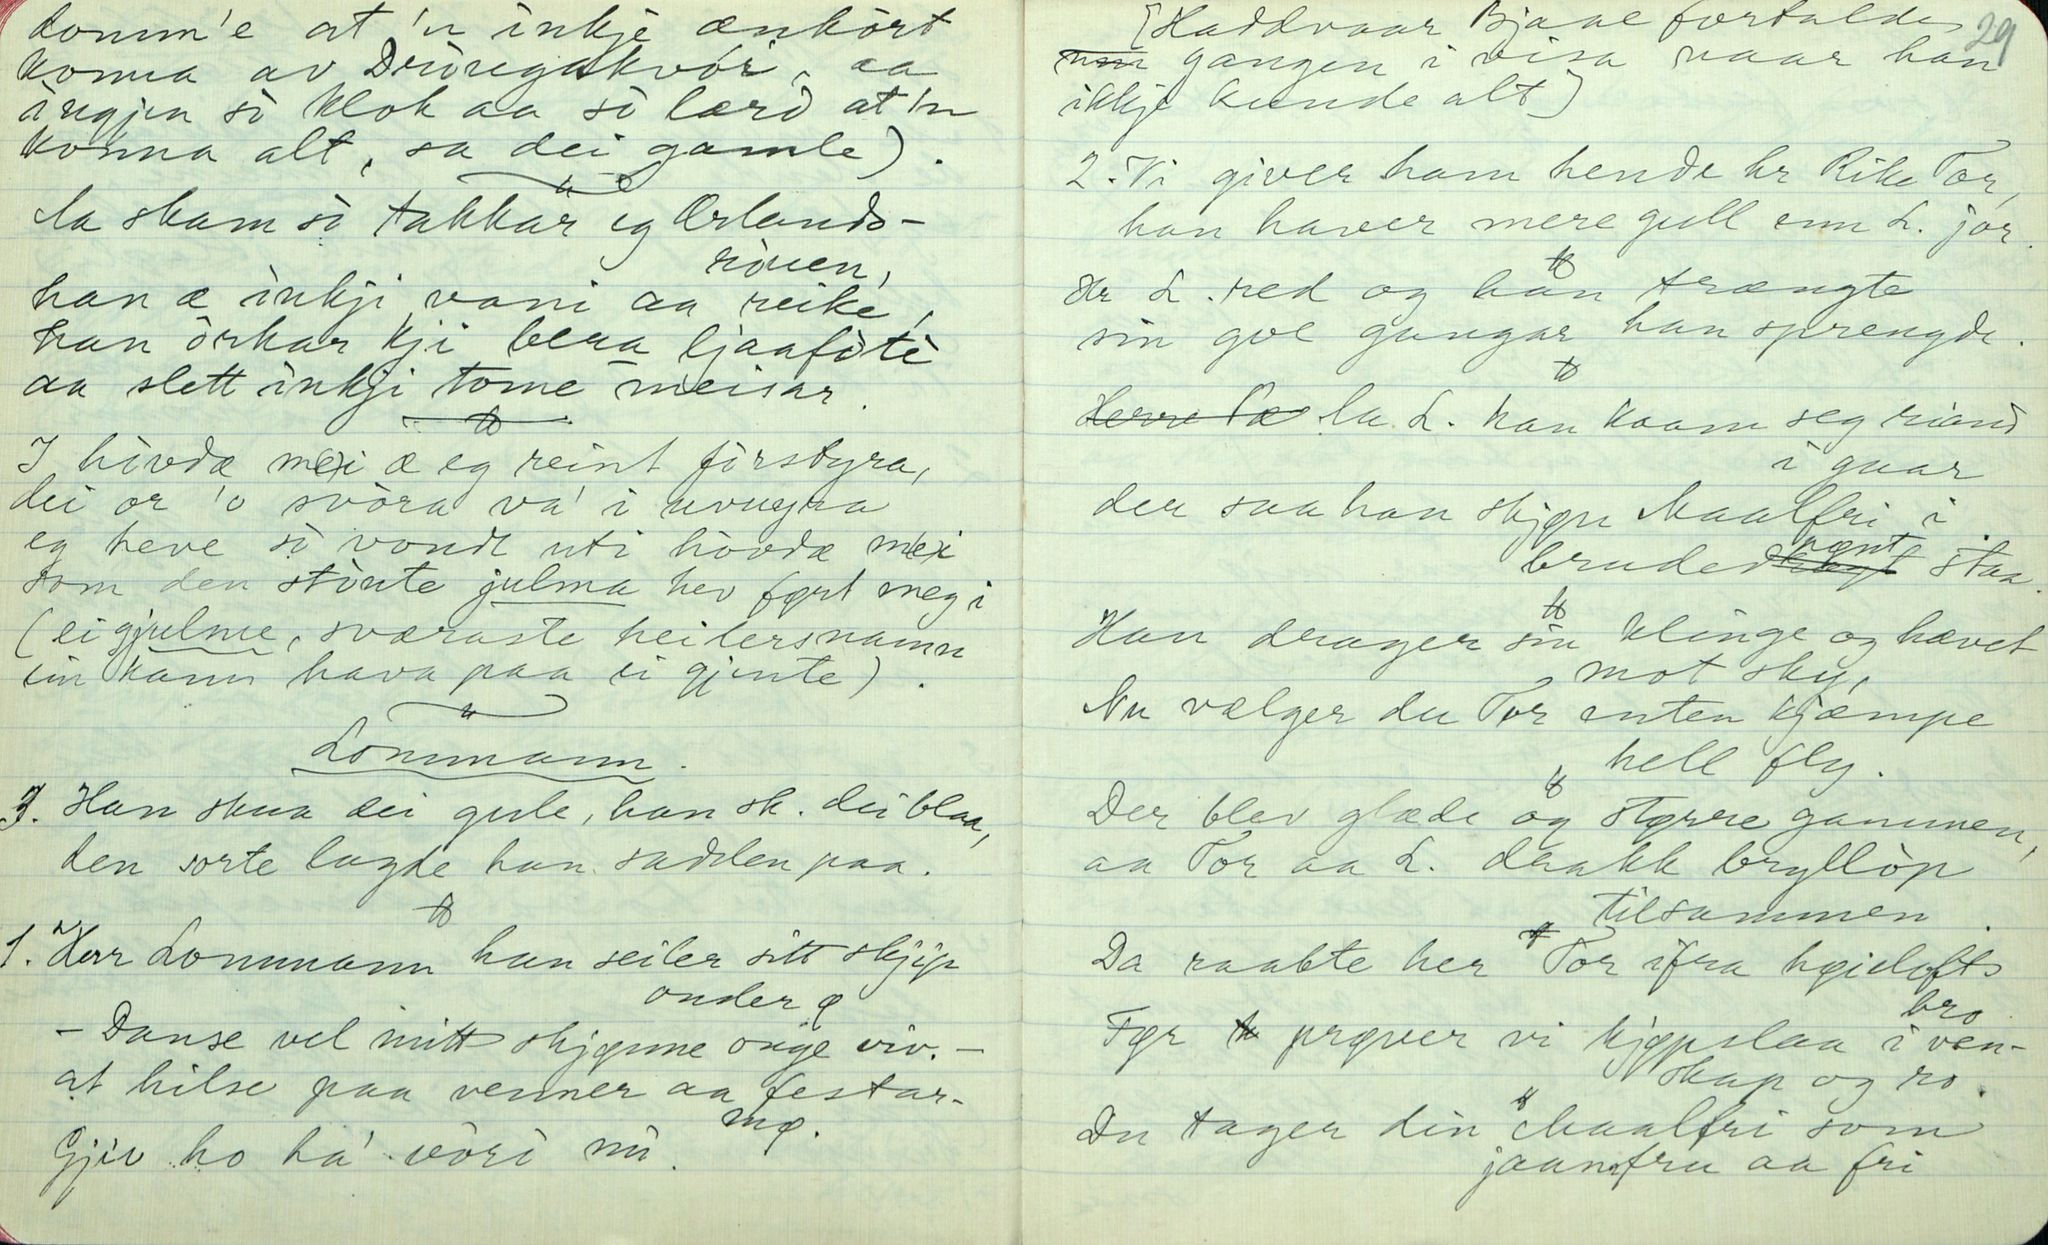 domm'e at 'n inkje ænkort
konna av Draumgakvæi, aa
ingjen so klok aa so lærd at 'n
konna alt, sa dei gamle).
Aa skam so takkar eg Ørlands-
röuen,
han æ inkji vani aa reike,
han orkar kji bera ljaafôtè
aa slett inkji tome meisar.
I hovdæ mei æ eg reint forstyra,
dei ær 'o svora va' i uvugna
eg heve so vondt uti hovdæ mei
som den stoute julma hev ført meg i
(ei gjulme, sværaste heitersnamn
ein kann hava paa ei gjente).
Lommann.
3. Han skua dei gule, han sk. dei blaa,
den sorte lagde han sadelen paa.
1. Herr Lommann han seiler sitt skjip
onder ø
- Danse vel mitt skjønne onge viv. -
at hilse paa venner aa festar-
mø.
Gjiv ho ha' vori mi.
29
[Haddvaar Bjaae fortalde
gangen i visa naar han
ikkje kunde alt]
2. Vi giver ham hende hr Rike Tor,
han haver mere gull enn L. jor.
Hr L. red og han trængte
sin goe gangar han sprengde.
Herre Pæ Aa L. han kaam seg riand
i gaar
der saa han skjøn Maalfri i
brudevent staa.
Han drager sin klinge og hævet
mot sky,
Nu vælger du Tor enten kjæmpe
hell fly.
Der blev glæde og større gammen,
aa Tor aa L. drakk bryllöp
tilsammen.
Da raabte her Tor ifra høielofts
bro
Før prøver vi kjøpslaa i ven-
skap og ro.
Du tager din Maalfri som
jaamfru aa fri